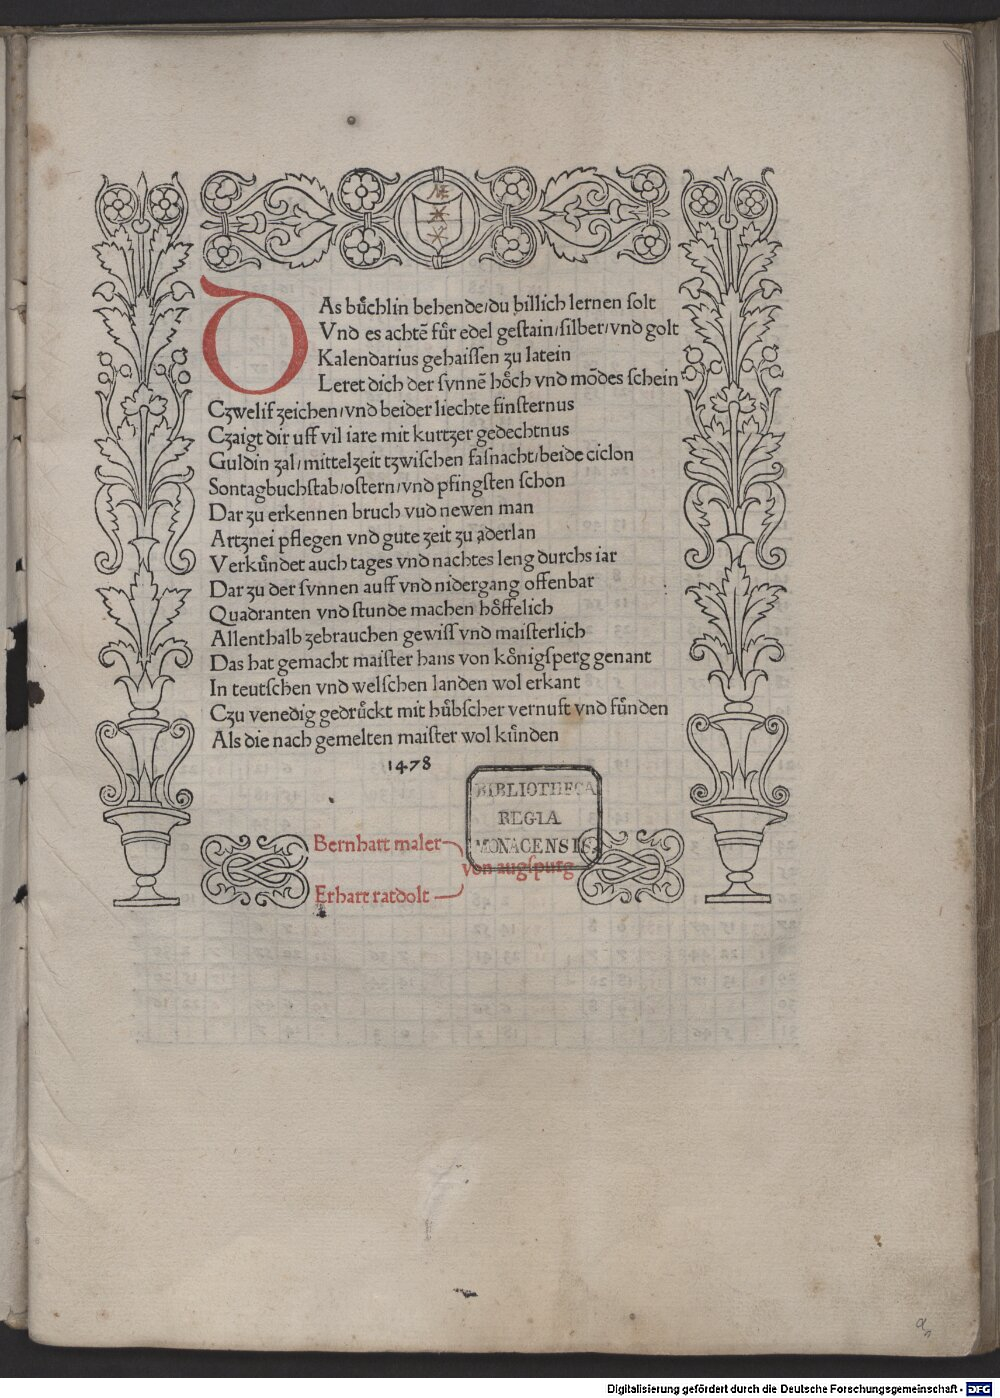 DAs bůchlin behende/du billich lernen solt
Vnd es achtē fůr edel gestain/silber/vnd golt
Kalendarius gehaissen zu latein
Leret dich der synnē hoͤch vnd mōdes schein
Czwelif zeichen/vnd beider liechte finsternus
Czaigt dir uff vil iare mit kurtzer gedechtnus
Guldin zal/mittelzeit tzwischen fasnacht/beide ciclon
Sontagbuchstab/ostern/vnd pfingsten schon
Dar zu erkennen bruch vud newen man
Artznei pflegen vnd gute zeit zu aderlan
Verkůndet auch tages vnd nachtes leng durchs iar
Dar zu der synnen auff vnd nidergang offenbar
Quadranten vnd stunde machen hoͤffelich
Allenthalb zebrauchen gewiss vnd maisterlich
Das hat gemacht maister hans von koͤnigsperg genant
In teutschen vnd welschen landen wol erkant
Czu venedig gedrůckt mit hůbscher vernuft vnd fůnden
Als die nach gemelten maister wol kůnden
1478
BIBLIOTHECA
REGIA
MONACENSIS
Bernhart maler
von augspurg
Erhart ratdolt
Digitalisierung gefördert durch die Deutsche Forschungsgemeinschaft - DFG